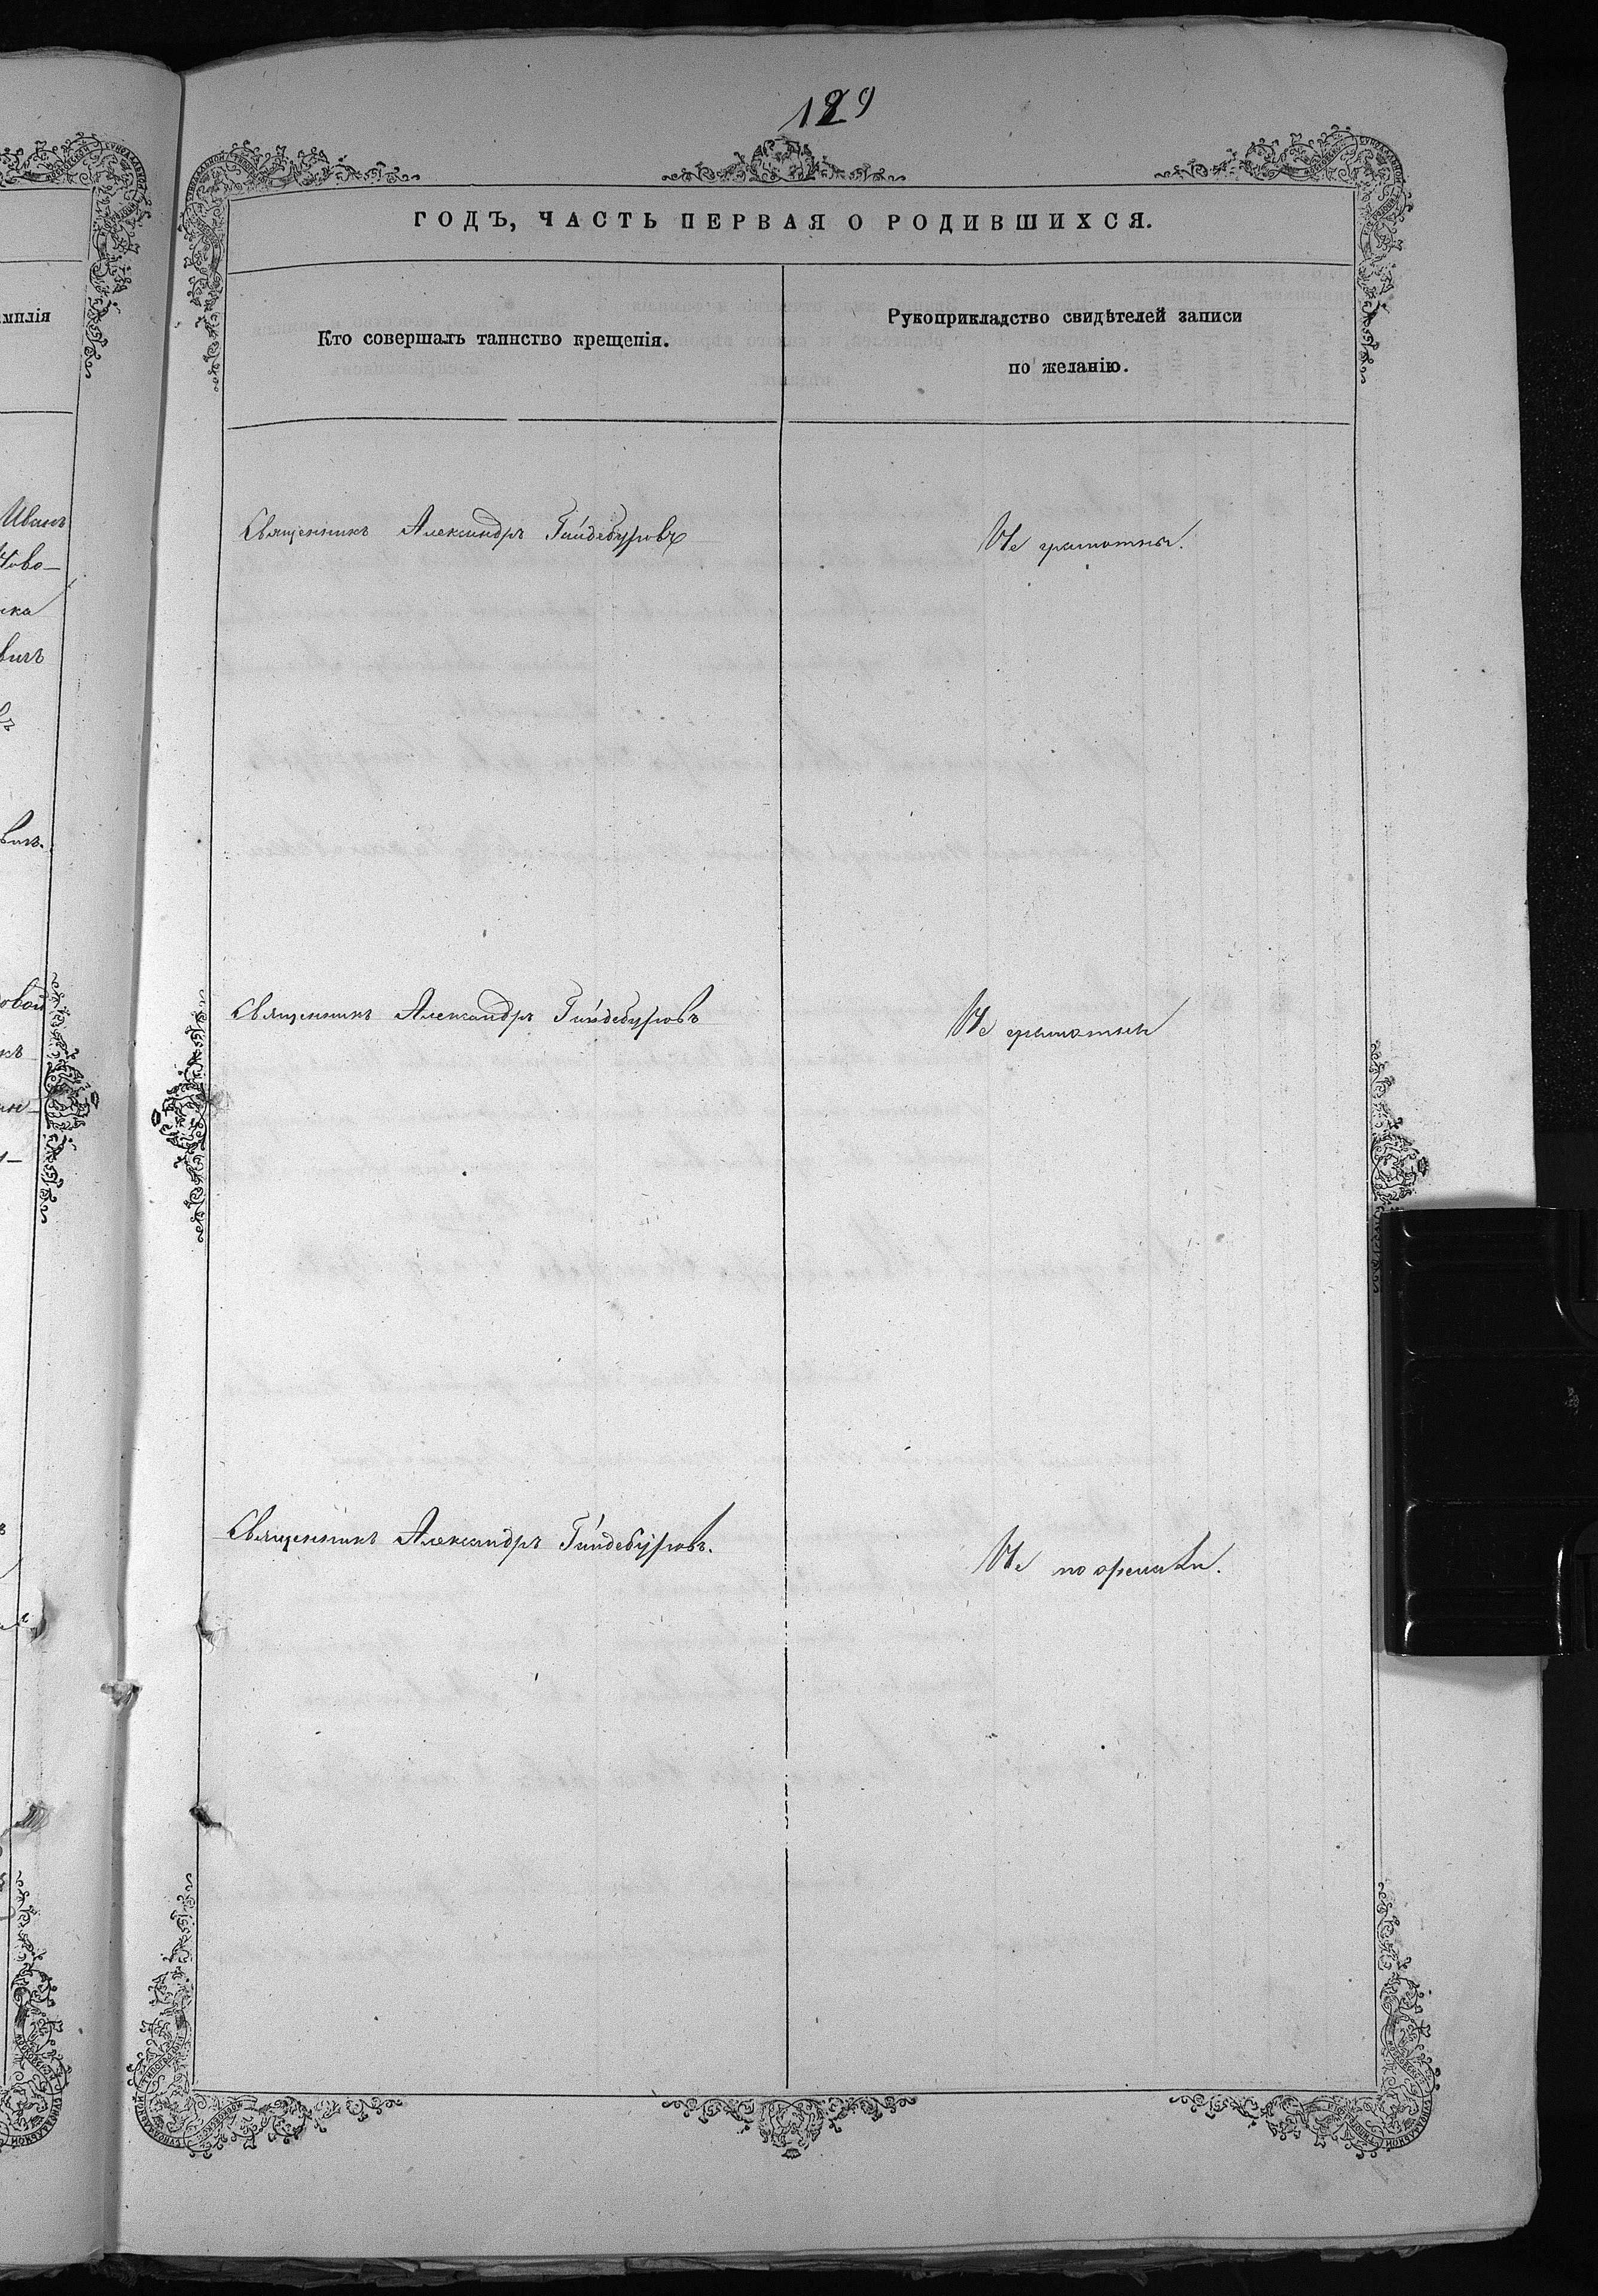 129
ГОДЪ, ЧАСТЬ ПЕРВАЯ О РОДИВШИХСЯ.
Кто совершалъ таинство крещенія.
Рукоприкладство свидѣтелей записи
по желанію.
Священникъ Александръ Гайдебуровъ
Не грамотны.
Священникъ Александръ Гайдебуровъ
Не грамотны
Священникъ Александръ Гайдебуровъ.
Не
милія
Иванъ
Ново-
вичъ